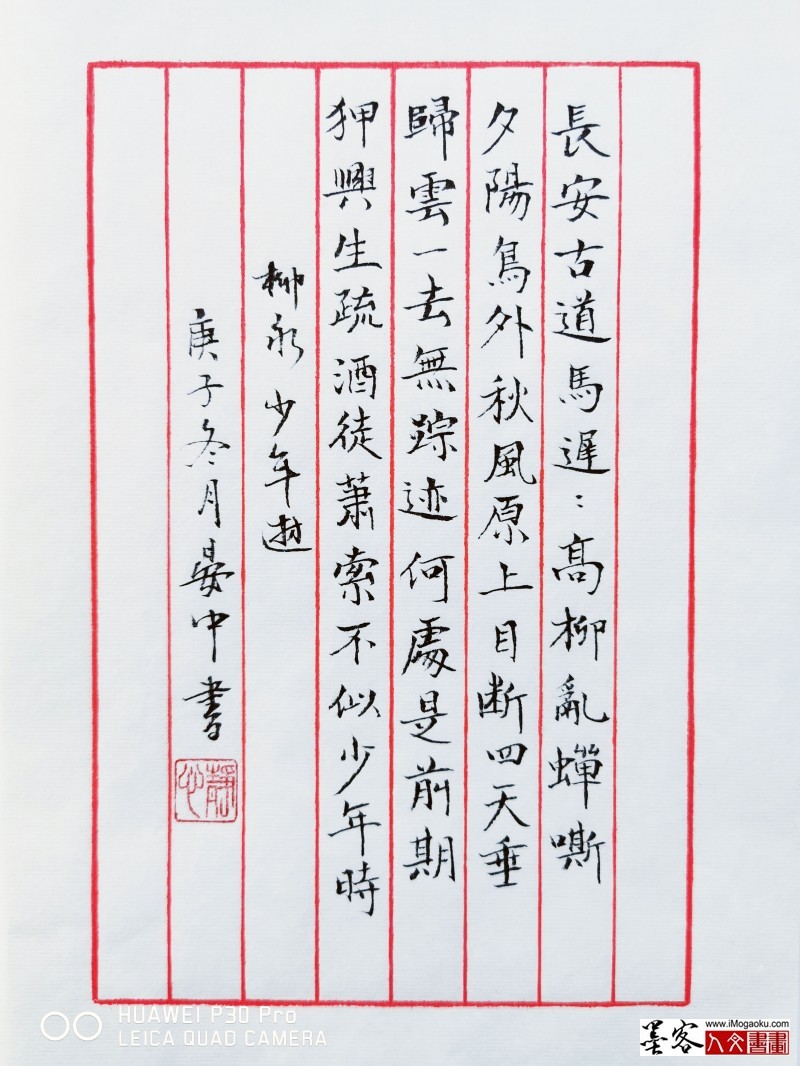 長安古道馬遲：高柳亂蟬嘶
夕陽鳥外秋風原上目断四天垂
歸雲一去無踪迹何處是前期
狎興生疏酒徒蕭索不似少年時
柳永 少年遊
庚子冬月晏中書
靜心
HUAWEI P30 Pro
LEICA QUAD CAMERA
墨客
www.iMogaoku.com
人文書畫